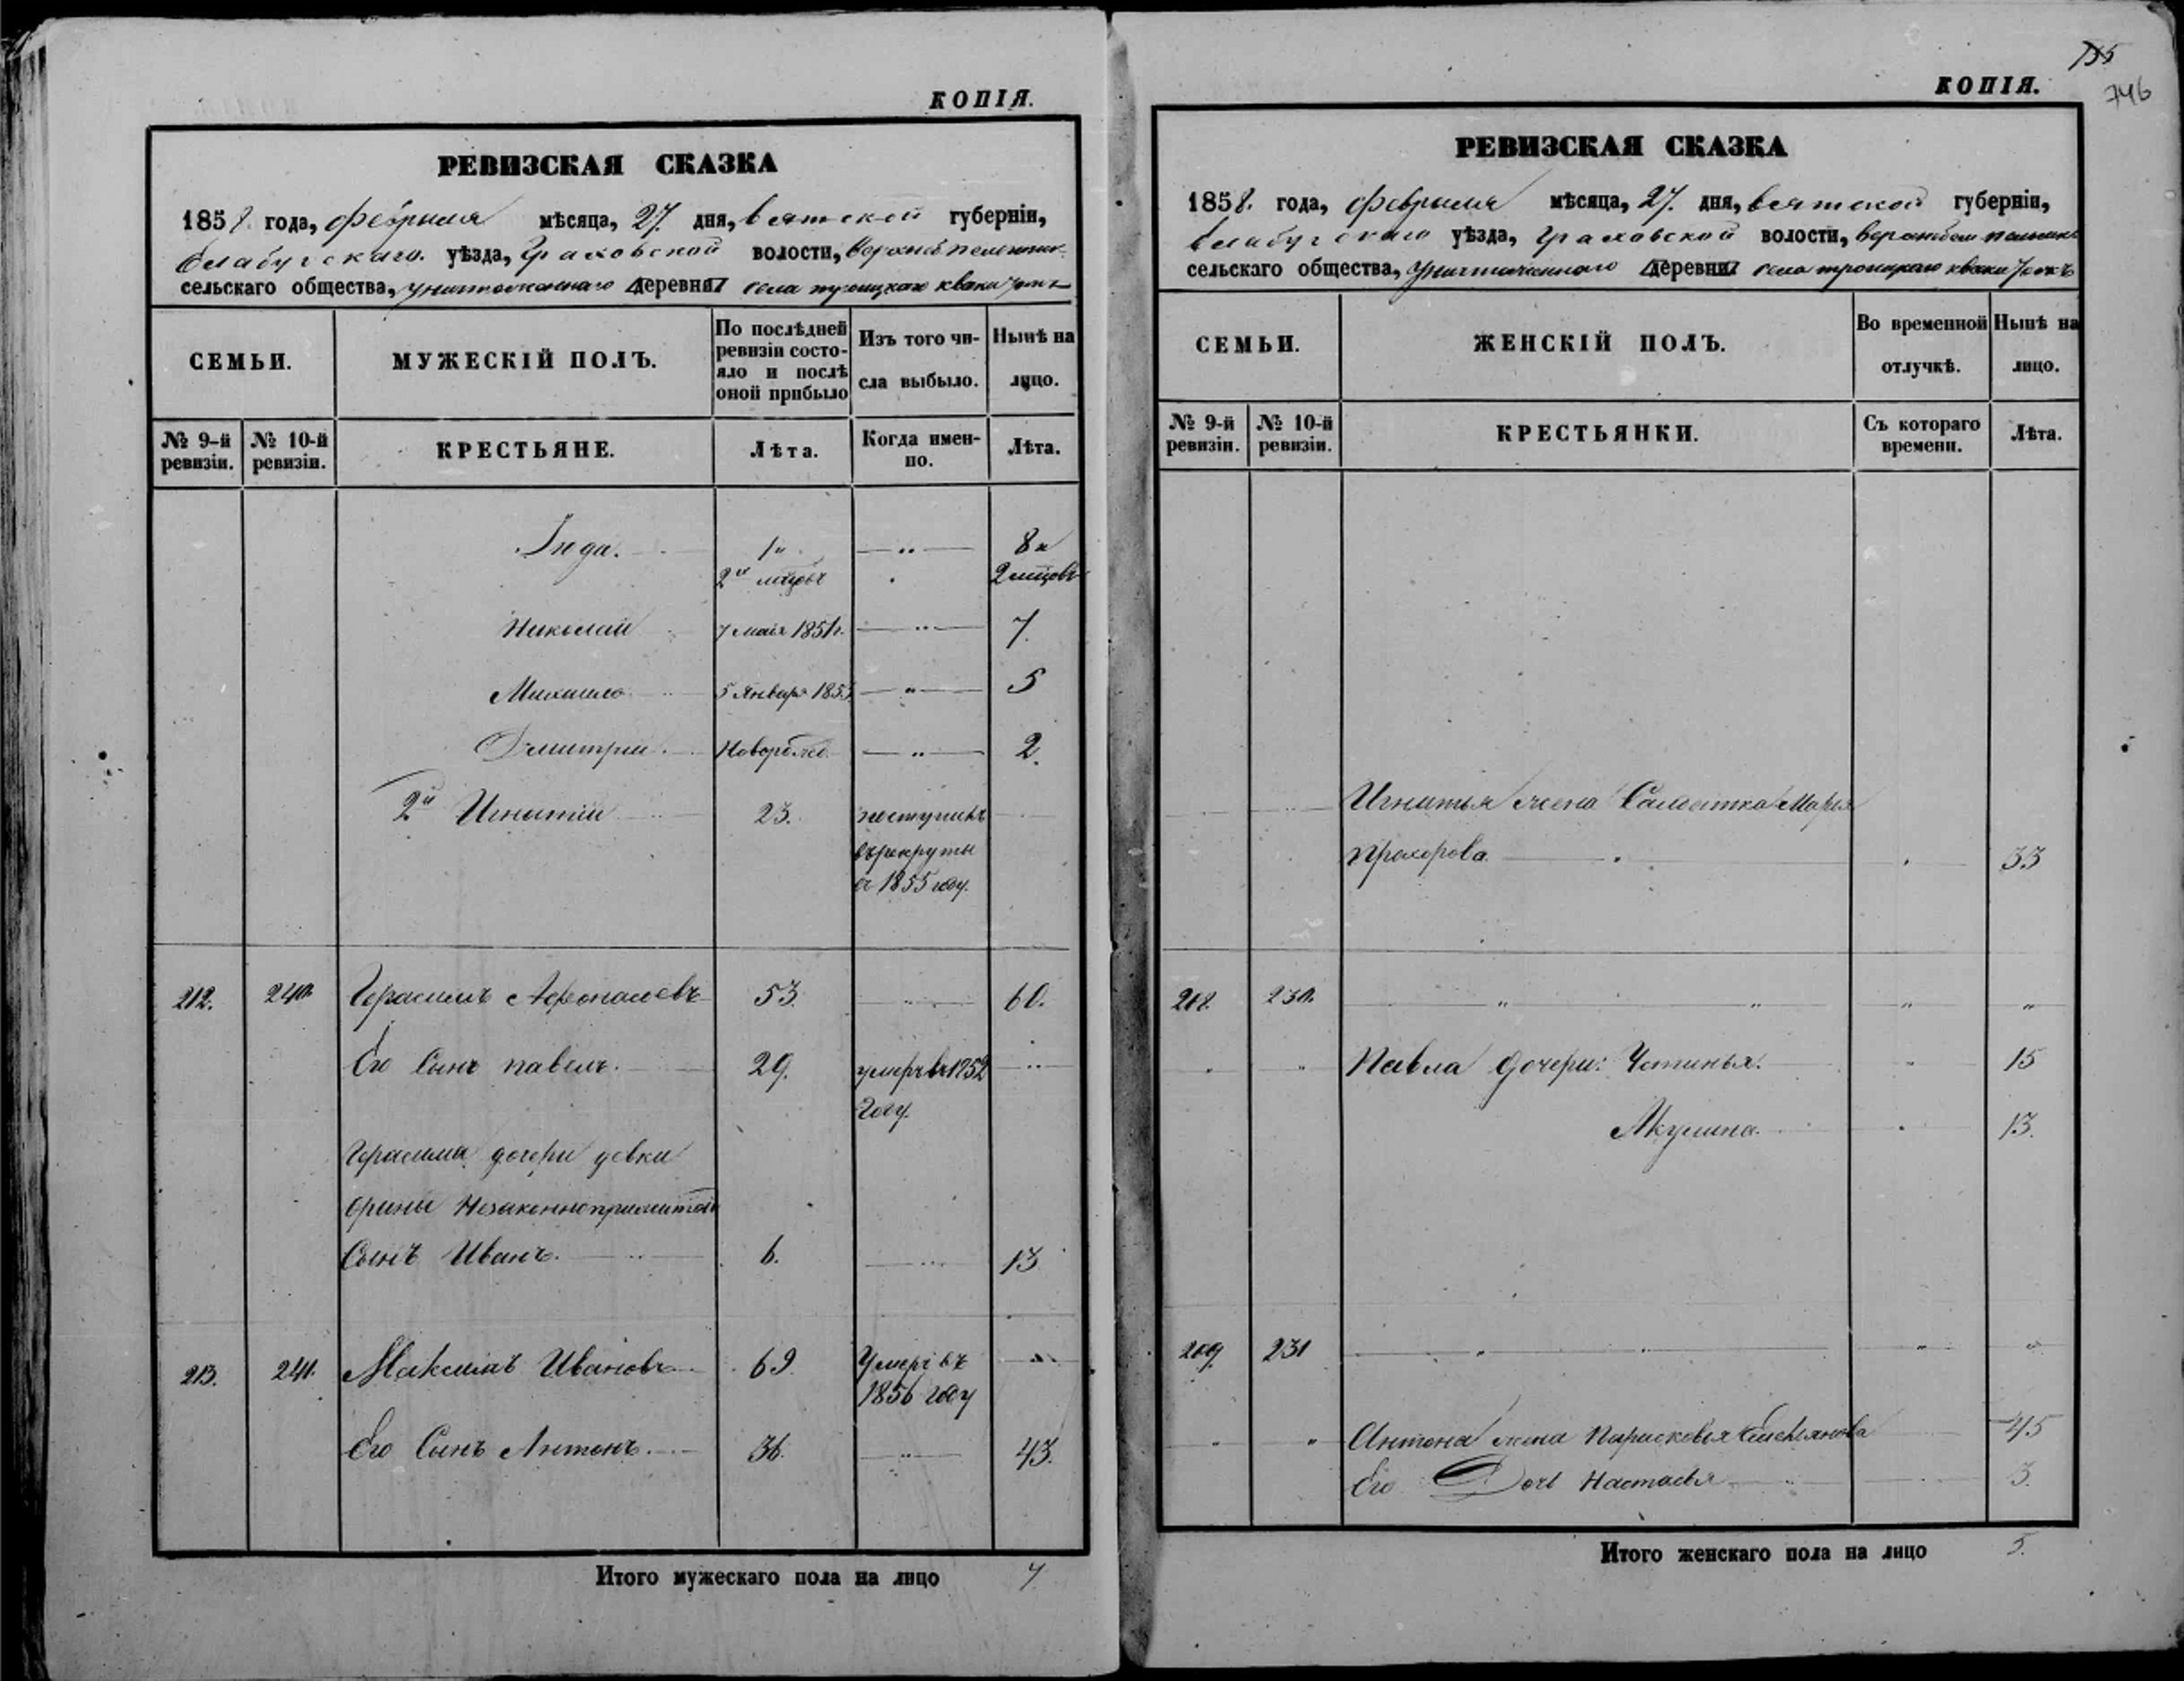 КОПІЯ.
РЕВИЗСКАЯ СКАЗКА
1858 года, февраля мѣсяца, 27. дня, вятской губерніи,
Елабугскаго уѣзда, Граховской волости,
сельскаго общества, деревни села троицкаго
СЕМЬИ.
МУЖЕСКІЙ ПОЛЪ.
По послѣдней ревизіи состо-
яло и послѣ оной прибыло
Изъ того чи-
сла выбыло.
Нынѣ на
лицо.
№ 9-й ревизіи.
№ 10-й ревизіи.
КРЕСТЬЯНЕ.
Лѣта.
Когда имен-
но.
Лѣта.
1 8
2 2
Николай 7 маія 1851г. 7.
Михаило 5 Января 185 5
Дмитрій Новорожд. 2.
2й Игнатій 23. поступилъ
въ рекруты
въ 1855 году.
212. 240. Герасимъ Афонасьевъ 53. 60.
Его Сынъ павелъ. 29. умеръ въ 1852
году.
Герасима дочери девки
орины Незаконноприжитой
Сынъ Иванъ. 6. 13
213. 241. Максимъ Ивановъ 69 Умеръ въ
1856 году
Его Сынъ Антонъ. 36. 43.
Итого мужескаго пола на лицо 7
746
КОПІЯ.
РЕВИЗСКАЯ СКАЗКА
1858. года, февраля мѣсяца, 27. дня, вятской губерніи,
Елабугскаго уѣзда, Граховской волости,
сельскаго общества, деревни села троицкаго
СЕМЬИ.
ЖЕНСКІЙ ПОЛЪ.
Во временной
отлучкѣ.
Нынѣ на
лицо.
№ 9-й ревизіи.
№ 10-й ревизіи.
КРЕСТЬЯНКИ.
Съ котораго
времени.
Лѣта.
Игнатья жена Салдатка Марья
Прохорова 33
208. 230.
Павла дочери: Устинья. 15
Акулина. 13.
209. 231
Антона жена Парасковья Емельянова 45
Его Дочь Настасья 3.
Итого женскаго пола на лицо 5.